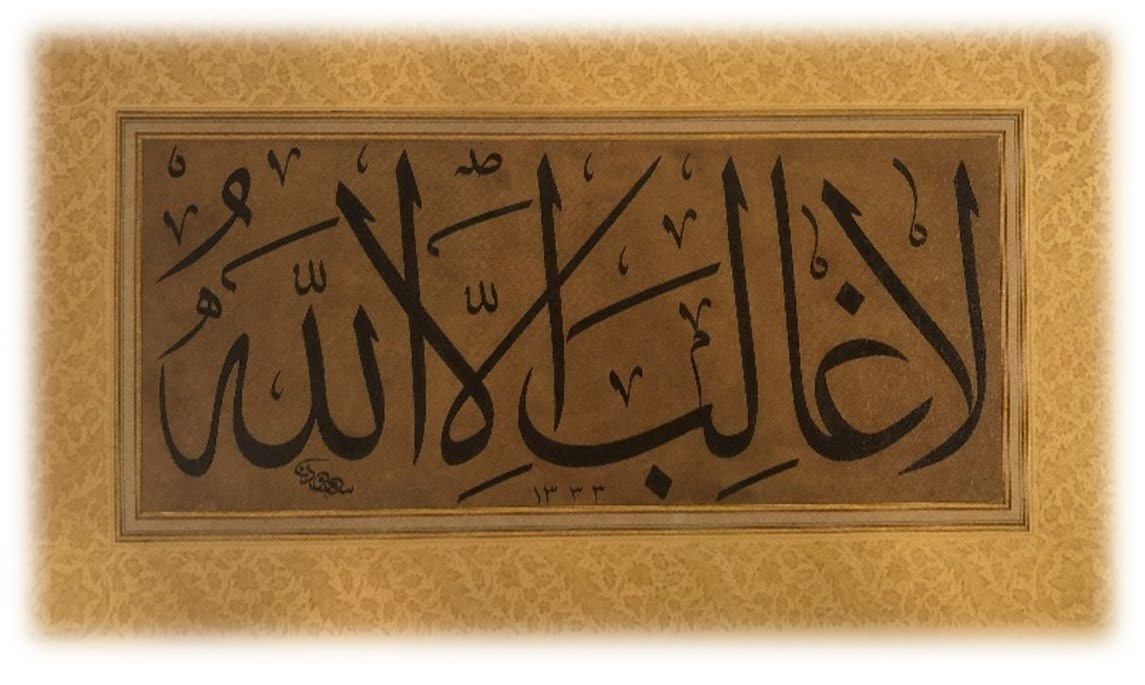 لَا غَالِبَ اِلَّا اللّٰهُ
١٣٣٣